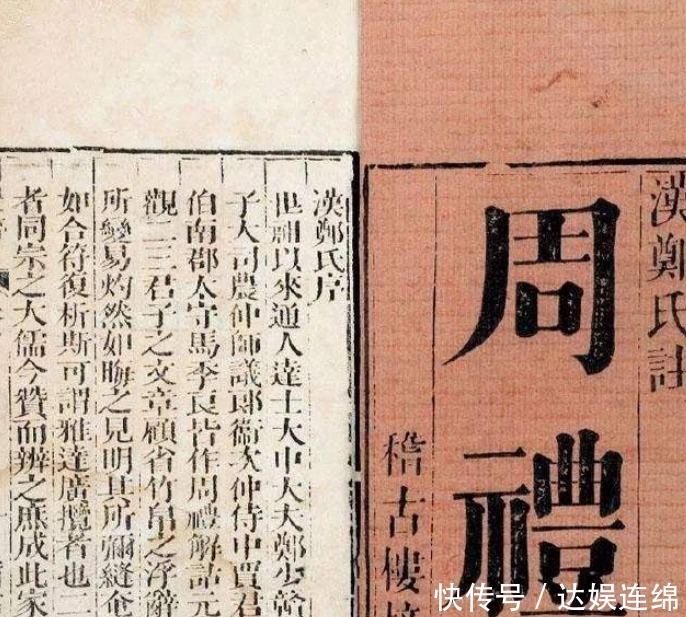 漢鄭氏註
周禮
稽古樓
漢鄭氏序
世祖以來通人達士大中大夫鄭少贛
子大司農仲師議郎衞次仲侍中賈君
伯南郡太守馬季長皆作周禮解詁元
觀二三君子之文章顧省竹帛之浮辭
所變易灼然如晦之見明其所彌縫奄
如合符復析斯可謂雅達廣攬者也二
者同宗之大儒今贊而辨之庶成此家
快传号／达娱连绵